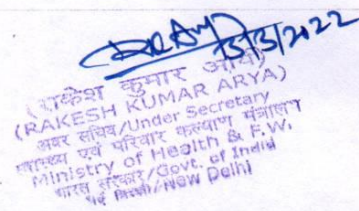 15/3/2022
(राकेश कुमार आर्या)
(RAKESH KUMAR ARYA)
अवर सचिव/Under Secretary
स्वास्थ्य एवं परिवार कल्याण मंत्रालय
Ministry of Health & F.W.
भारत सरकार/Govt. of India
नई दिल्ली/New Delhi